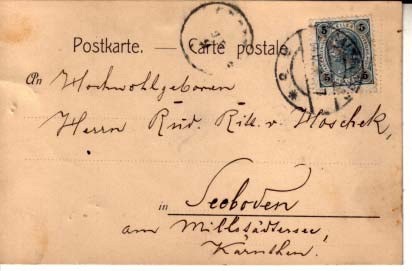 Postkarte. — Carte postale.
An Hochwohlgeboren
Herrn Rud. Ritt. v. Moschek,
in Seeboden
am Millstädtersee,
Kärnthen.
5 5
5 5